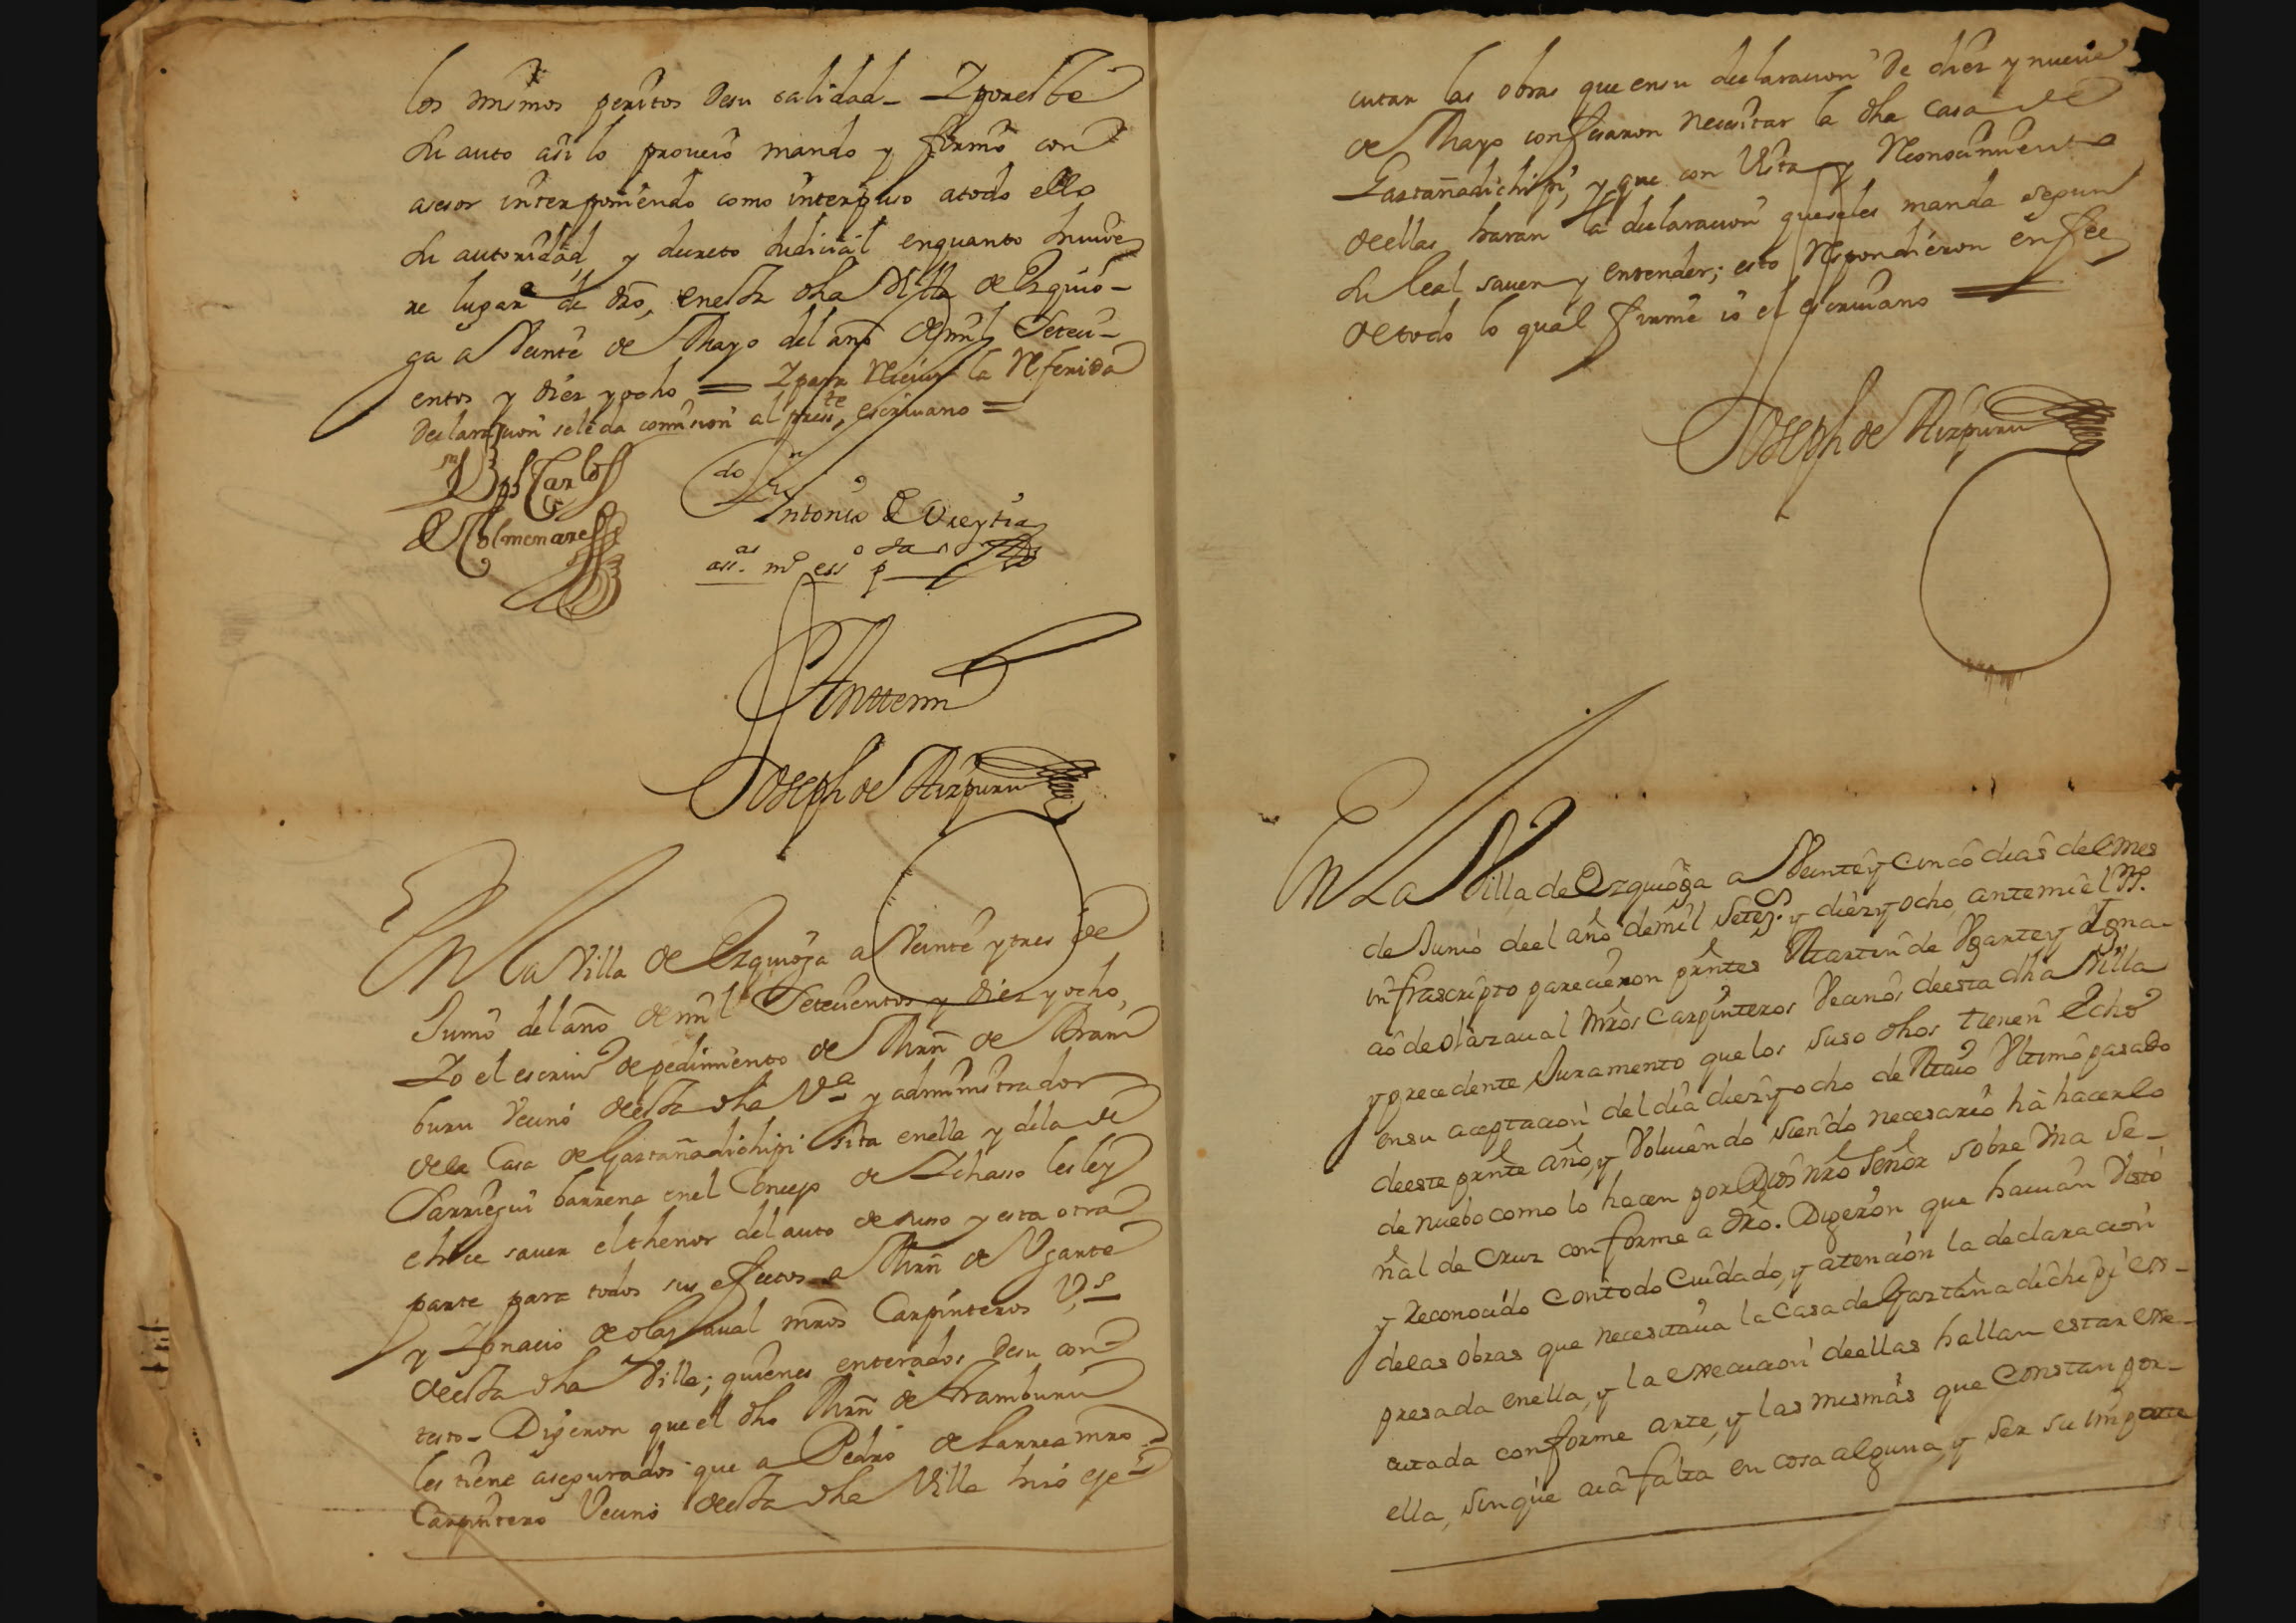 los mismos peritos de su calidad - Y por este
su auto asi lo proveio mando y firmo con
asesor interponiendo como interpuso a todo ello
su autoridad, y decreto Judicial en quanto huuie
re lugar de dro, en esta dha Villa de Ezquio-
ga a Veinte de Mayo del año de mil Seteci-
entos y diez y ocho = Y para reciuir la referida
Declaracion se le da comision al press.te escriuano =
Dn Jph Carlos
de Colmenares
do Dn
Antonio de Oreytia
Anttemi
Joseph de Aizpuru
En la Villa de Ezquioga a Veinte y tres de
Junio del año de mil Setecientos y diez y ocho,
Yo el escriuo de pedimiento de Mrñ de Aram
buru Vecino de esta dha Va y administrador
de la Casa de Gaztañadichipi sita en ella y de la de
Sarriegui barrena en el Concejo de Ichasso les ley
e hice sauer el thenor del auto de suso y esta otra
parte para todos sus efectos a Mrñ de Vgarte
y Ygnacio de olazaual mros Carpinteros Vs
de esta dha Villa; quienes enterados de su con
testo - Digeron que el dho Mrñ de Aramburu
les tiene asegurados que a Pedro de Larrea mro
Carpintero Vecino de esta dha Villa hizo eje
cutar las obras que en su declaracion de diez y nueue
de Mayo confesaron necesitar la dha Casa de
Gaztañadichipi, y que con Vista y Reconocimiento
de ellas haran la declaracion que se les manda segun
su leal sauer y entender; esto Respondieron en fee
de todo lo qual firme io el escriuano
Joseph de Aizpuru
En La Villa de Ezquioga a Veinte y Cinco dias del Mes
de Junio de el año de mil Setezs. y diez y ocho, ante mi el Ss.
infrascripto parecieron prntes Martin de Vgarte y Ygna-
cio de olazaual Mros Carpinteros Vecinos de esta dha Villa
y precedente Juramento que los suso dhos tienen Echo
en su aceptacion del dia diez y ocho de Maio Vltimo pasado
de este prnte año, y Voluiendo siendo necesario hà hacerlo
de nuebo como lo hacen por Dios nro Señor sobre Vna Se-
ñal de Cruz conforme a dro. Digeron que hauian Visto
y Reconocido con todo Cuidado, y atencion la declaracion
de las obras que necesitaua la Casa de Gaztañadichipi ex-
presada en ella, y la execucion de ellas hallan estar exe-
cutada conforme arte, y las mesmas que Constan por
ella, sin que aia falta en cosa alguna, y ser su importe